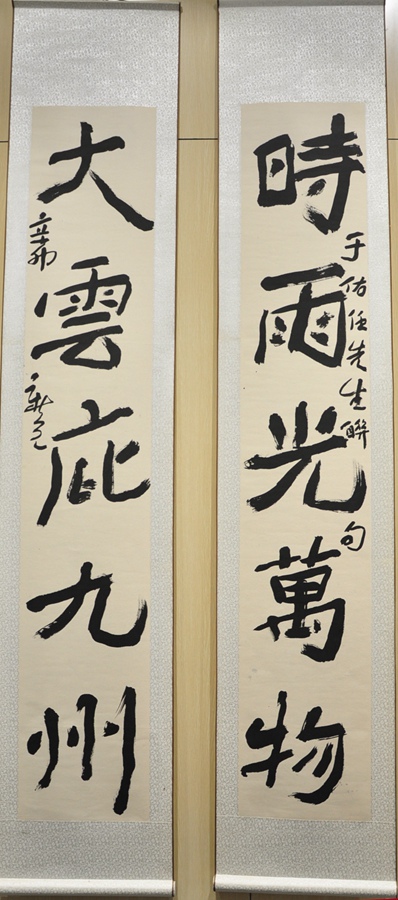 時雨光萬物
于佑任先生聯句
大雲庇九州
辛卯